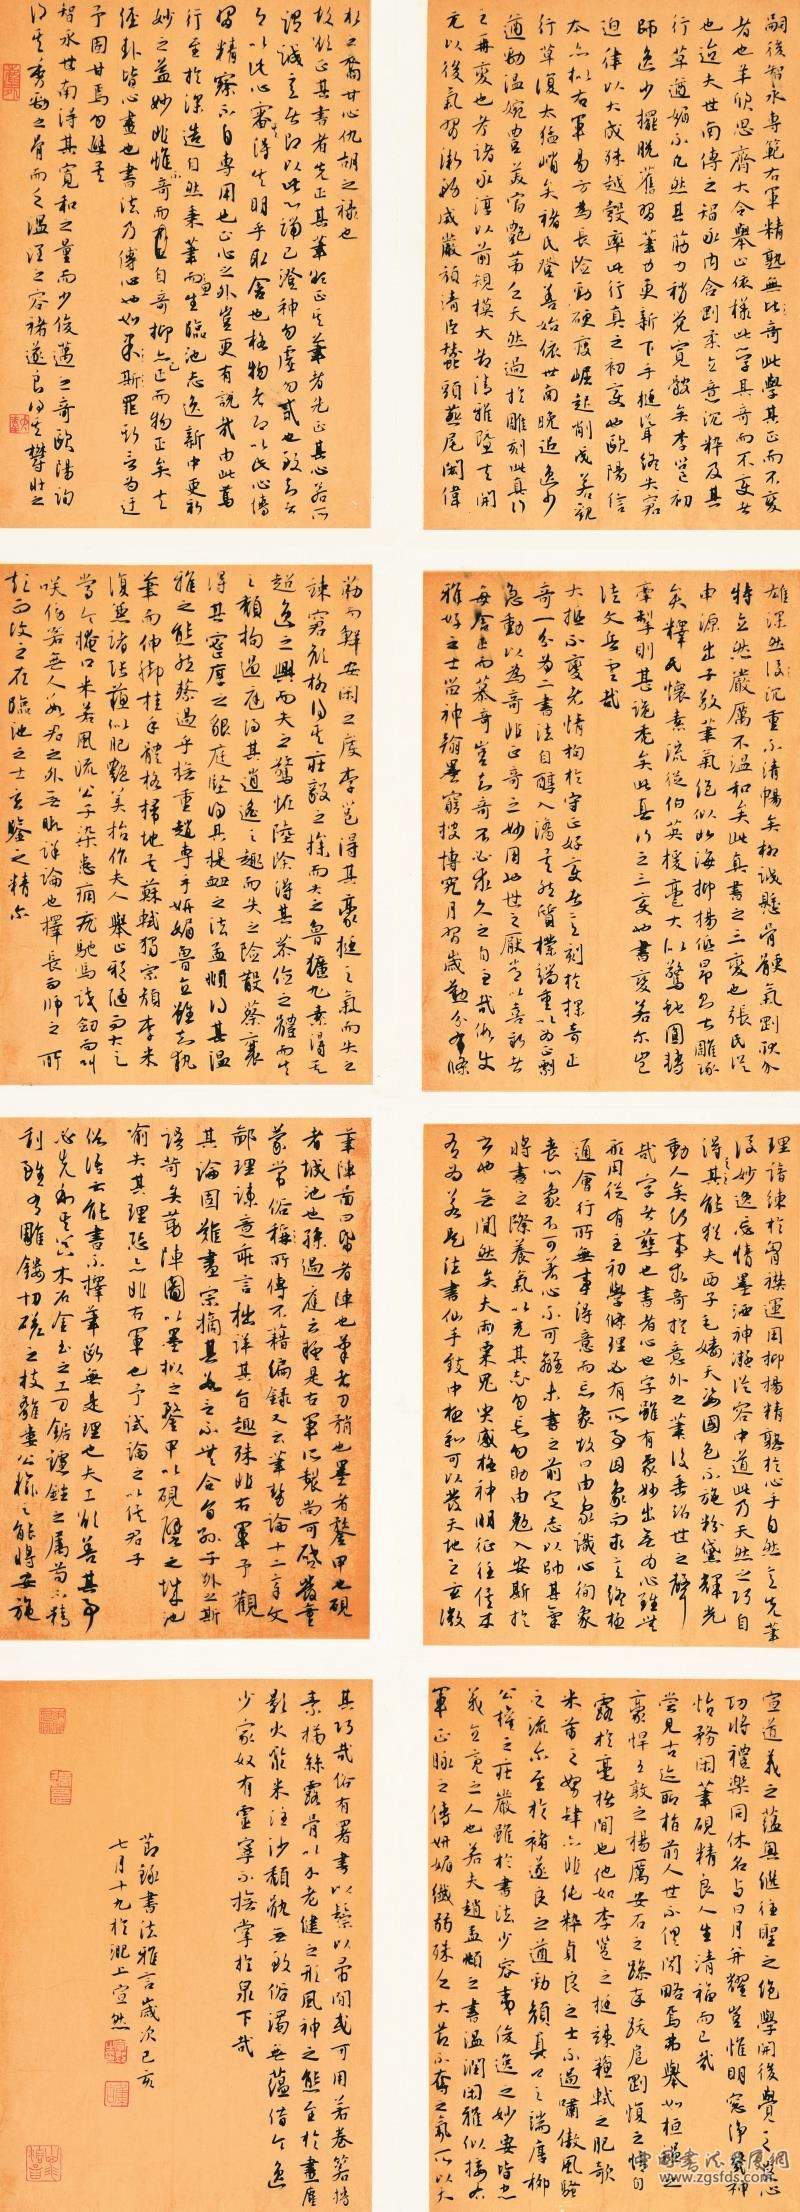 嗣後智永專範右軍精熟無比奇此學其正而不變
者也羊欣思齊大令舉止依樣此學其奇而不變者
也迨夫世南傳之智永內含剛柔立意沉粹及其
行草遒媚不凡然其筋力稍覺寬敞矣李邕初
師逸少擺脫舊習筆力更新下手挺聳終失窘
迫律以大成殊越彀率此行真之初變也歐陽信
本亦拟右軍易方為長險勁硬瘦崛起削成若觀
行草復太猛峭矣褚氏登善始依世南晚追逸少
遒勁溫婉豐美富艷第乏天然過於雕刻此真行
之再變也考諸永淳以前規模大都清雅暨夫開
元以後氣習漸務威嚴顏清臣蠶頭燕尾闳偉
雄深然後沉重不清暢矣柳誠懸骨鯁氣剛耿介
特立然嚴厲不溫和矣此真書之三變也張氏從
申源出子敬筆氣絕似北海抑揚低昂則甚雕琢
矣釋氏懷素流從伯英援毫大似驚蛇圓轉
牽掣則甚詭禿矣此真行之三變也書變若爾豈
徒文兵云哉
大抵不變者情拘於守正好變者意刻於探奇正
奇一分為二書法自醇入漓矣然質樸端重以為正剽
急動以為奇非正奇之妙用也世之厭常以喜新者
每舍正而慕奇豈知奇不必求久之自至哉假
雅好之士留神翰墨窮搜博究月習歲勤分布條
理諳練於胸襟運用抑揚精熟於心手自然意先筆
後妙逸忘情墨灑神凝從容中道此乃天然之巧自
得其能猶夫西子毛嬙天姿國色不施粉黛輝光
動人矣何事求奇於意外之筆後垂絕世之聲
哉字者孳也書者心也字雖有象妙出無為心雖無
形用從有主初學條理必有所事因象而求意終極
通會行所無事得意而忘象故曰由象識心徇象
喪心象不可著心不可離未書之前定志以帥其氣
將書之際養氣以充其志勿忘勿助由勉入安斯於
書也無閒然矣夫雨粟鬼哭感格神明徵往俟來
有為若是法書仙手致中極和可以發天地之玄微
宣道義之蘊奧繼往聖之絕學開後覺之良心
功將禮樂同休名與日月并耀豈惟明窗淨几神
怡務閑筆硯精良人生清福而已哉
嘗見古迹聊指前人世不俚聞略焉弗舉如桓溫之
豪悍王敦之揚厲安石之躁率跋扈剛愎之情自
露於毫楮間也他如李邕之挺竦蘇軾之肥欹
米芾之努肆亦非純粹貞良之士不過嘯傲風騷
之流爾至於褚遂良之遒勁顏真卿之端厚柳
公權之莊嚴雖於書法少容夷俊逸之妙要皆忠
義直亮之人也若夫趙孟頫之書溫潤閑雅似接右
軍正脈之傳妍媚纖弱殊乏大節不奪之氣所以天
水之裔甘心仇胡之祿也
故欲正其書者先正其筆欲正其筆者先正其心若所
謂誠意者即以此心端己澄神勿虛勿貳也致知者
即以此心審得失明乎取舍也格物者即以此心博
習精察不自專用也正心之外豈更有說哉由此篤
行至於深造自然秉筆而生趣臨池志逸新中更新
妙之益妙非惟不奇而自奇抑亦己正而物正矣夫
經卦皆心畫也書法乃傳心也如罪斯言為迂
予固甘焉勿避矣
智永世南得其寬和之量而少俊邁之奇歐陽詢
得其秀勁之骨而乏溫潤之容褚遂良得其鬱壯之
筋而鮮安閑之度李邕得其豪挺之氣而失之
竦窘顏柳得其莊毅之操而失之魯獷旭素得其
超逸之興而失之驚怪陸徐得其恭儉之體而失
之頹拘過庭得其逍遙之趣而失之險散蔡襄
得其密厚之貌庭堅得其提衄之法孟頫得其溫
雅之態然蔡過乎撫重趙專乎妍媚魯直雖知執
筆而伸脚挂手體格掃地矣蘇軾獨宗顏李米
復兼諸張蘇似肥艷美抬作夫人舉止邪陋而大足
當令掩口米若風流公子染患癰疣馳馬試劍而叫
笑傍若無人數君之外無暇詳論也擇長而師之所
短而改之在臨池之士玄鑒之精爾
筆陣圖曰紙者陣也筆者刀矟也墨者鍪甲也硯
者城池也孫過庭云猶是右軍所製尚可啓發童
蒙常俗稱所傳不藉編錄又云筆勢論十二章文
鄙理疎意乖言拙詳其旨趣殊非右軍予觀
其論固難盡宗摘其數之不無合旨孫子外之斯
語苛矣第陣圖以墨拟之鍪甲以硯譬之城池
喻失其理恐亦非右軍也予試論之以俟君子
俗語云能書不擇筆斷無是理也夫工欲善其事
必先利其器木石金玉之工刀鋸鑢銼之屬苟不精
利雖有雕鏤切磋之技離婁公輸之能將安施
其巧哉俗有署書以鬃以帚間或可用若卷箬摶
素描絲露骨以不老健之形風神之態至於畫
影火箸米注沙頹魁無致俗濁無蘊借今逸
少家奴有靈寧不撫掌於泉下哉
節錄書法雅言歲次己亥
七月十九於淝上宣然
中国书法发展网
www.zgsfds.com